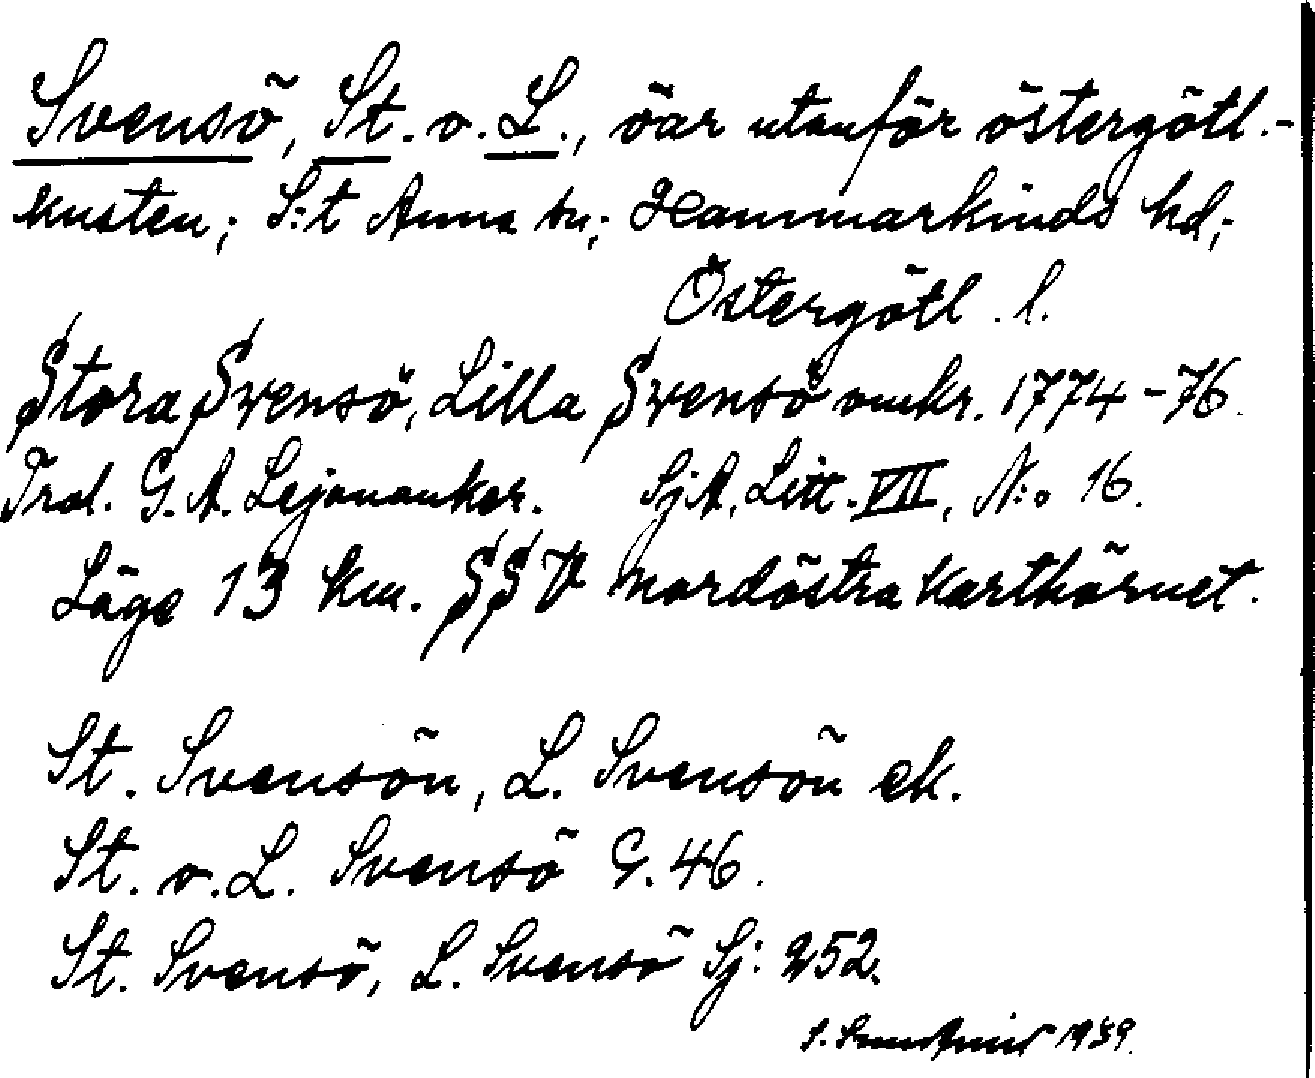 Svensö, St. o. L., öar utanför östergötl.-
kusten; S:t Anna sn; Hammarkinds hd;
Östergötl. l.
Stora Svensö, Lilla Svensö omkr. 1774-76.
Trol. G. A. Lejonanker. SjA, Litt. VII, N:o 16.
Läge 13 km. SSV nordöstra karthörnet.
St. Svensön, L. Svensön ek.
St. o. L. Svensö G. 46.
St. Svensö, L. Svensö Sj: 252.
1939.